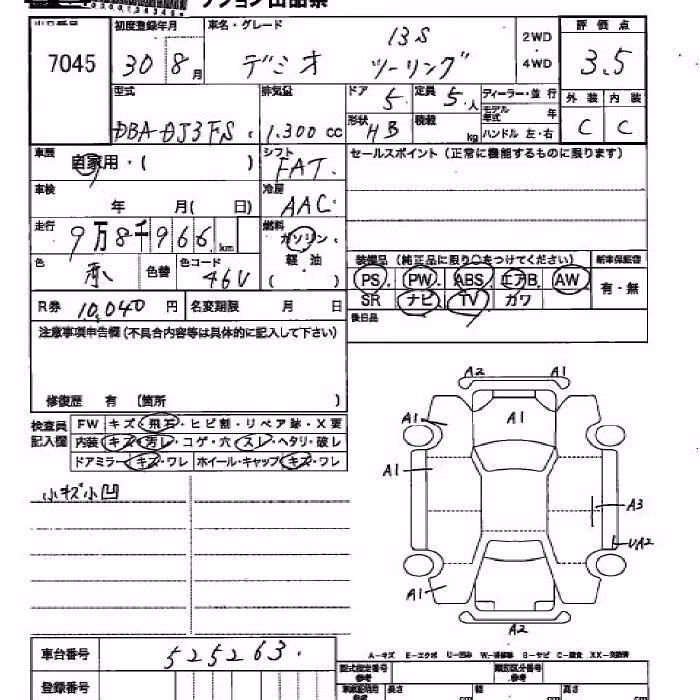 オークション出品票
出品番号 初度登録年月 車名・グレード 評価点
7045 30 8月 デミオ 13S ツーリング 2WD ・ 4WD 3.5
型式 排気量 ドア 5 定員 5人 ディーラー・並行 外装 内装
DBA-DJ3FS 1.300cc 形状 HB 積載 kg モデル年式 年 C C
ハンドル 左・右
車歴 自家用・( ) シフト FAT セールスポイント(正常に機能するものに限ります)
車検 年 月( 日) 冷房 AAC
走行 9万8千966km 燃料 ガソリン
軽油
( )
装備品(純正品に限り○をつけてください) 新車保証書
色 赤 色替 色コード 46V
PS PW ABS エアB AW 有・無
SR ナビ TV カワ
R券 10,040円 名変期限 月 日
後日品
注意事項申告欄(不具合内容等は具体的に記入して下さい)
修復歴 有 (箇所 )
検査員記入欄 FW キズ・飛石・ヒビ割・リペア跡・X要
内装 キズ・汚レ・コゲ・穴・スレ・ヘタリ・破レ
ドアミラー キズ・ワレ ホイール・キャップ キズ・ワレ
小キズ小凹
A2 A1
A1 A1
A1
A3
UA2
A1
A2
A-キズ E-エクボ U-凹み W-補修跡 S-サビ C-腐食 XX-交換済
車台番号 525263
型式指定番号 参考 類別区分番号 参考
登録番号
長さ cm 幅 cm 高さ cm